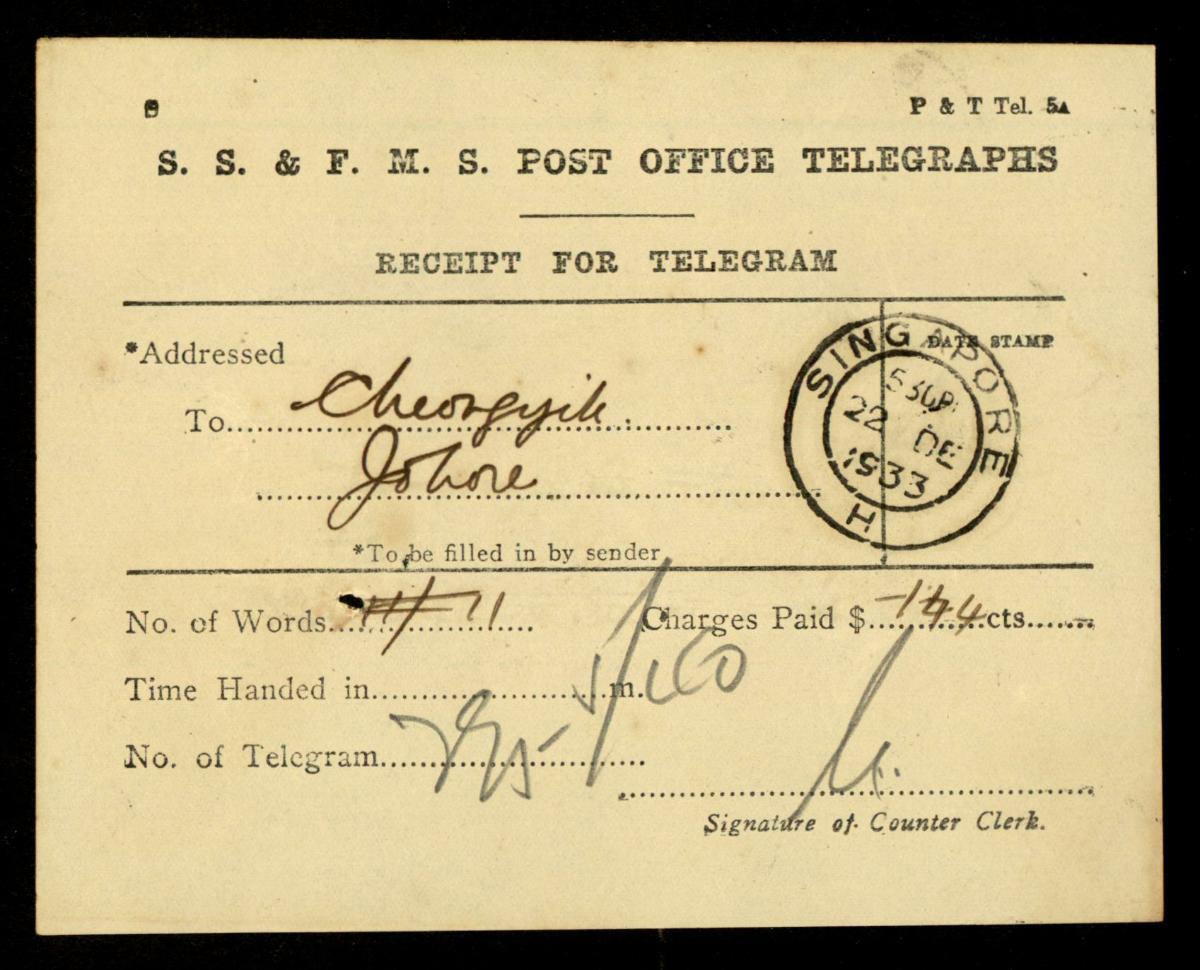 P & T Tel. 5A
S. S. & F. M. S. POST OFFICE TELEGRAPHS
RECEIPT FOR TELEGRAM
*Addressed
DATE STAMP
To Cheongyik
Johore
SINGAPORE
22 DE
1933
H
*To be filled in by sender
No. of Words 11 Charges Paid $ cts
Time Handed in m.
No. of Telegram
Signature of Counter Clerk.